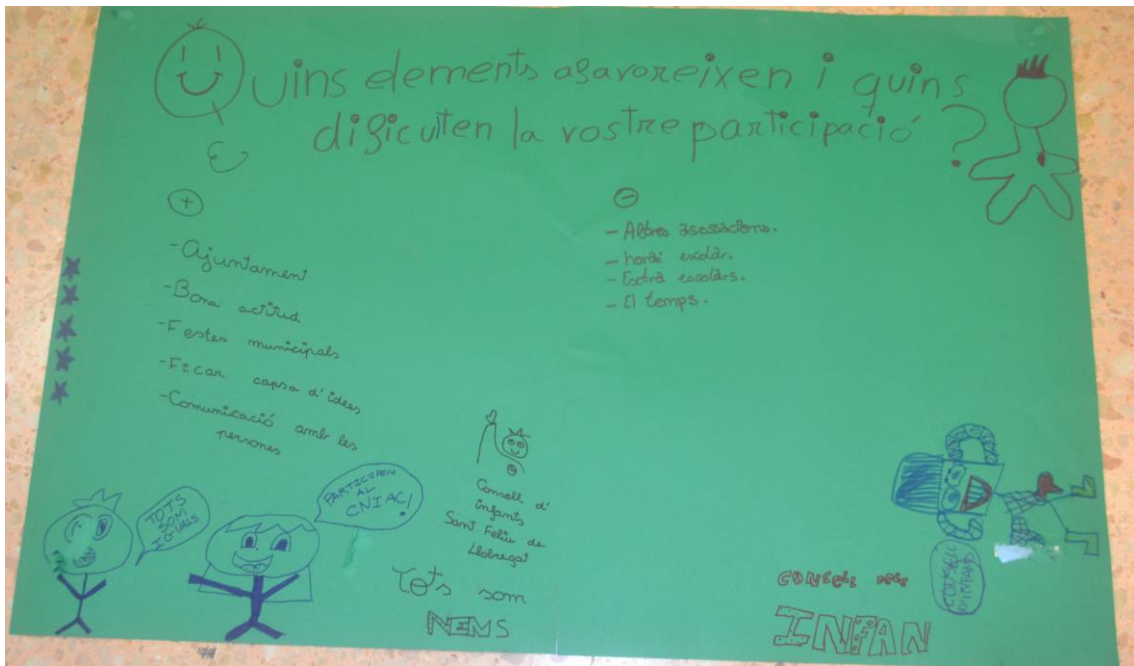 Quins elements afavoreixen i quins
dificulten la vostre participació ?
+
- Ajuntament
- Bona actitud
- Festes municipals
- Ficar capsa d'idees
- Comunicació amb les
persones
-
- Altres asossacions.
- horari escolar.
- Extra escolars.
- El temps.
TOTS
SOM
IGUALS
PARTICIPEN
AL
CNIAC!
Consell d'
infants
Sant Feliu de
Llobregat
Tots som
NENS
CONSELL DELS
INFAN
CONSELL
D'INFANTS